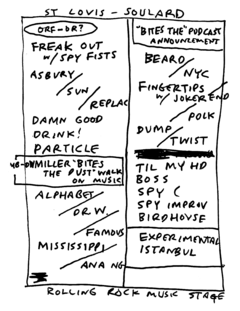 ST LOUIS - SOULARD
ORF-OR?
FREAK OUT
w/ SPY FISTS
ASBURY
SUN
REPLAC
DAMN GOOD
DRINK!
PARTICLE
MILLER "BITES
THE DUST" WALK
ON MUSIC
ALPHABET
DR.W.
FAMOUS
MISSISSIPPI
ANA NG
"BITES THE" PODCAST
ANNOUNCEMENT
BEARD
NYC
FINGERTIPS
w/ JOKER END
POLK
DUMP
TWIST
TIL MY HD
BOSS
SPY (
SPY IMPROV
BIRDHOUSE
EXPERIMENTAL
ISTANBUL
ROLLING ROCK MUSIC STAGE